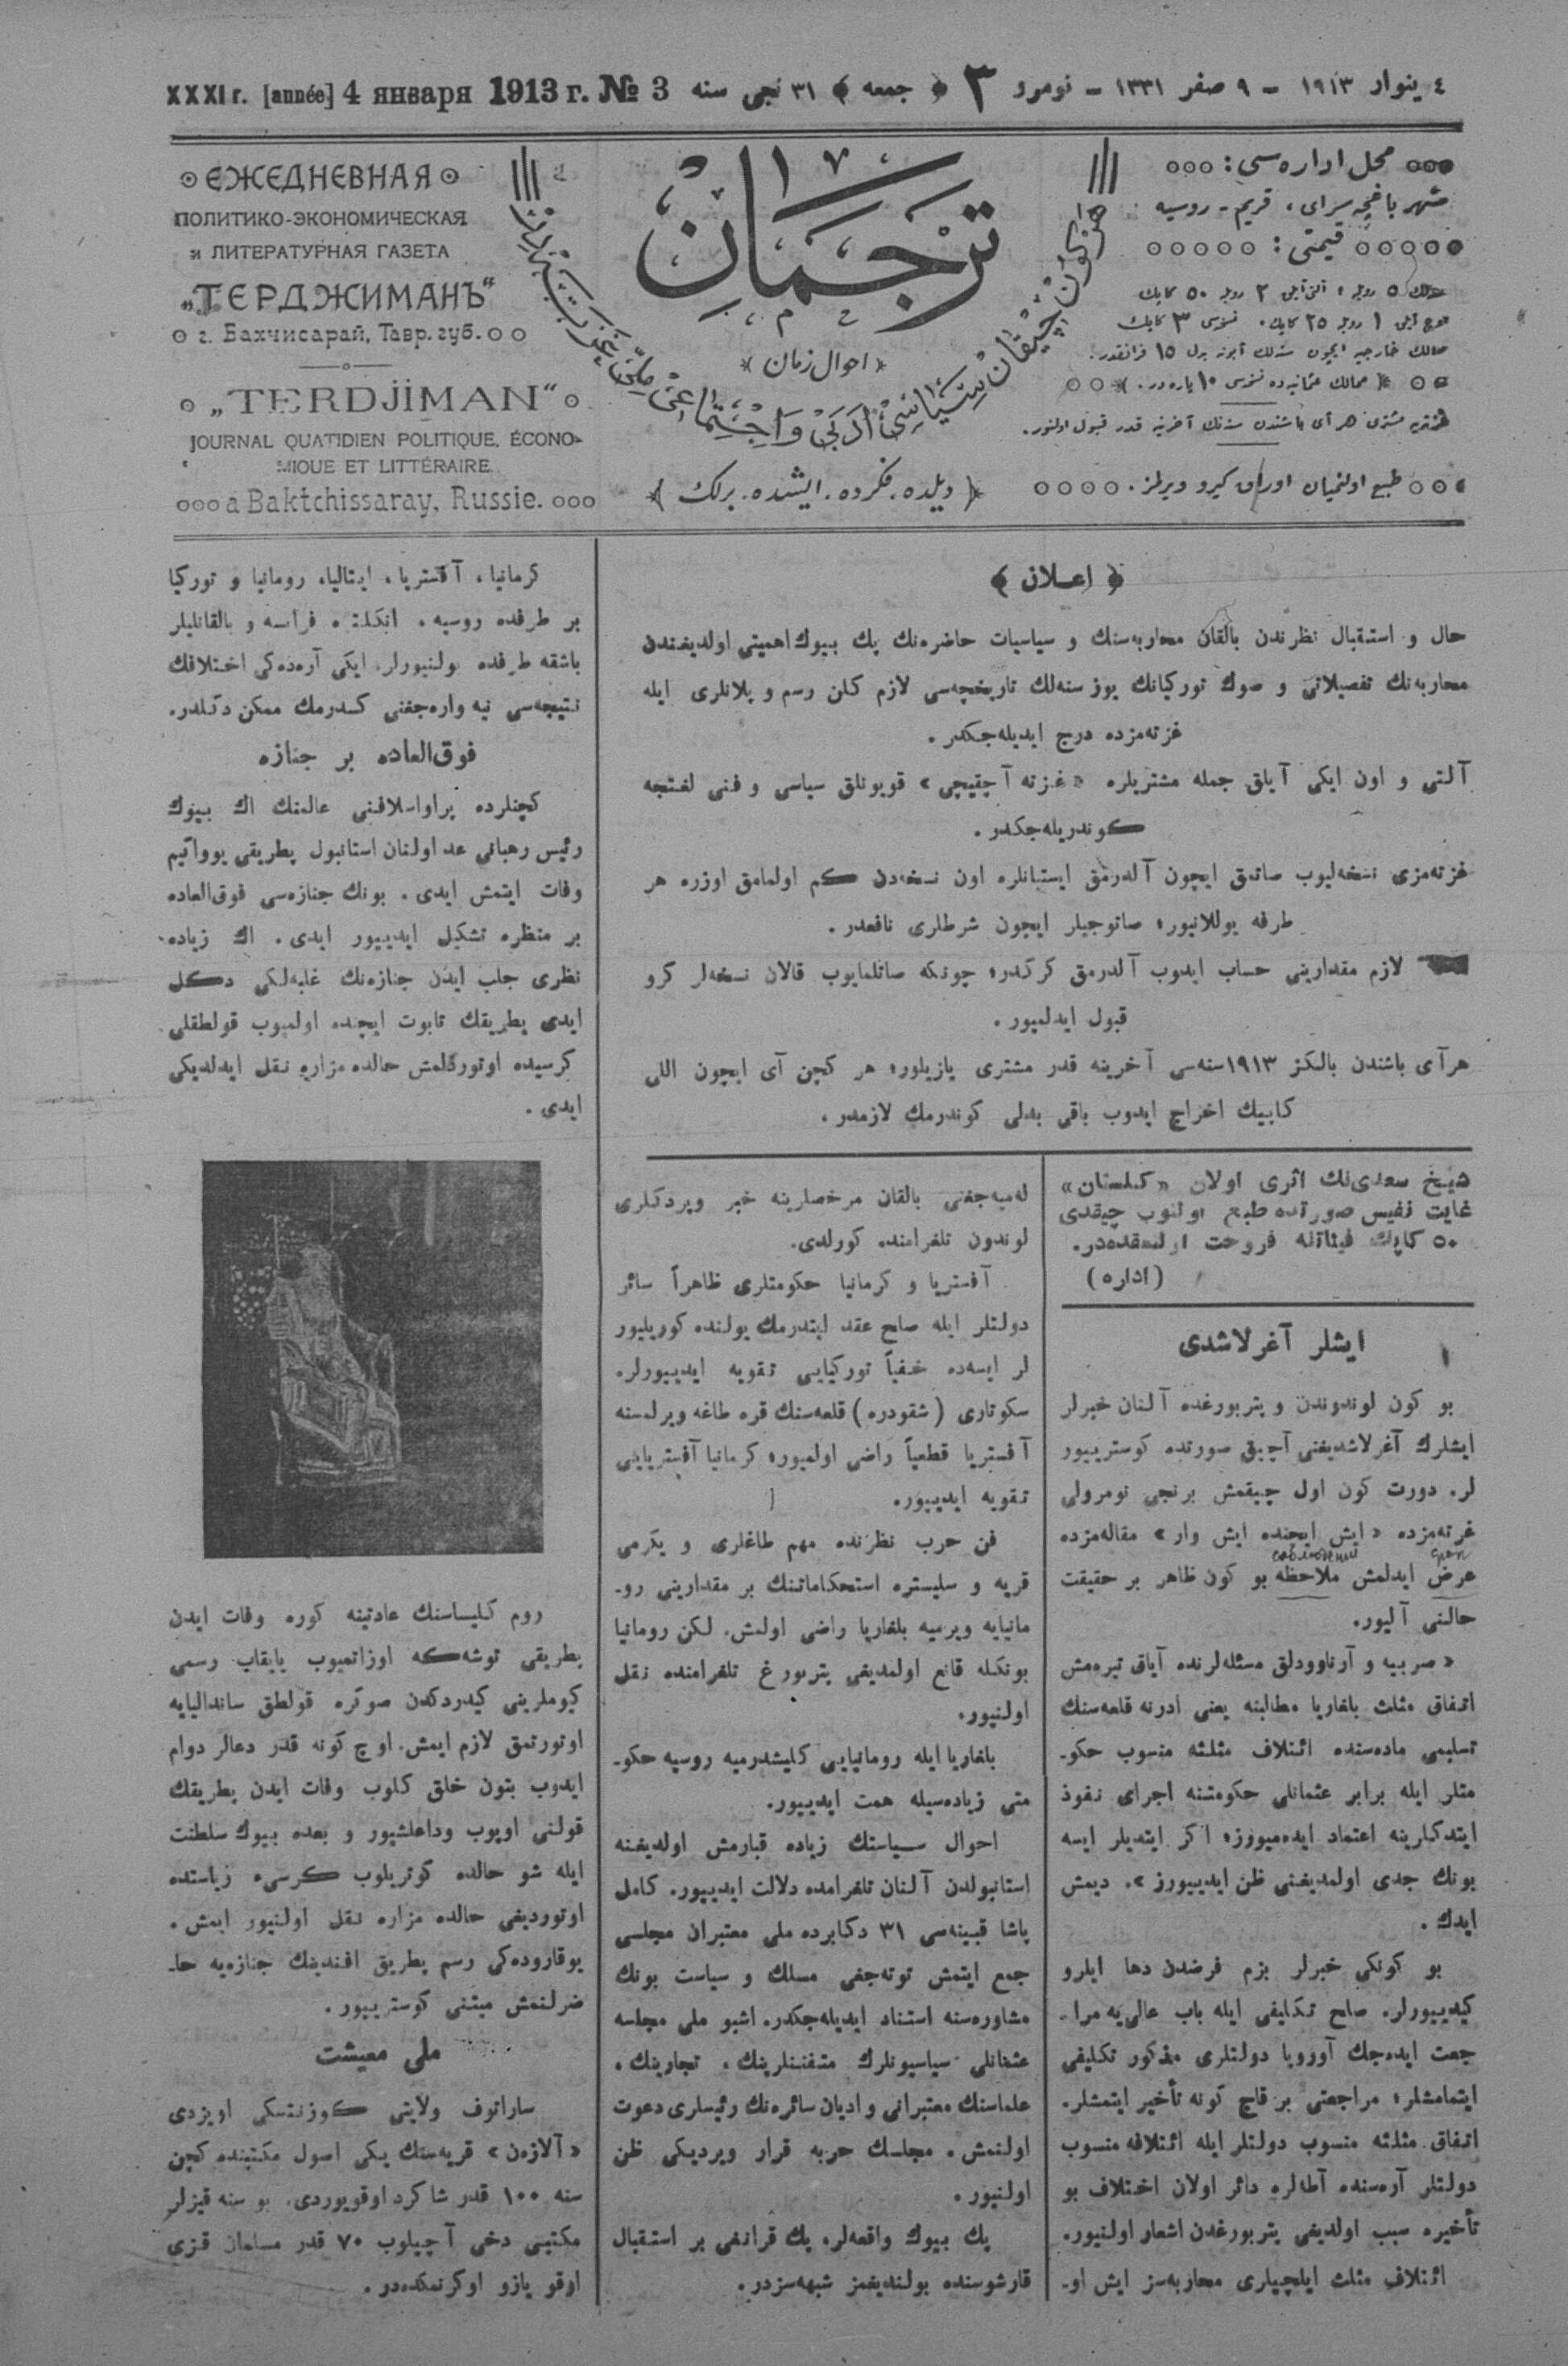 XXXI г. [année] 4 января 1913 г. № 3 ٣١ نجی سنه ﴿ جمعه ﴾ ٣ نومرو – ٩ صفر ١٣٣١ – ٤ ینوار ١٩١٣
ЕЖЕДНЕВНАЯ
ПОЛИТИКО-ЭКОНОМИЧЕСКАЯ
и ЛИТЕРАТУРНАЯ ГАЗЕТА
„ТЕРДЖИМАНЪ“
г. Бахчисарай, Тавр. губ.
„TERDJIMAN“
JOURNAL QUATIDIEN POLITIQUE, ÉCONO-
MIQUE ET LITTÉRAIRE
á Baktchissaray, Russie.
ترجمان
﴿ احوال زمان ﴾
هر كون چیقان سیاسی ادبی و اجتماعی ملی غزته در
﴿ دیلده. فكرده. ایشده. برلك ﴾
محل اداره‌سی:
شهر باغچه سرای، قریم - روسیه
قیمتی:
سنه‌لك ٥ روبله؛ آلتی آیلق ٢ روبله ٥٠ كاپك
اوچ آیلق ١ روبله ٢٥ كاپك. نسخه‌سی ٣ كاپك
ممالك خارجیه ایچون سنه‌لك آبونه بدل ١٥ فرانقدر.
﴿ ممالك عثمانیه‌ده نسخه‌سی ١٠ پاره‌در. ﴾
غزته‌یه مشتری هر آی باشندن سنه‌نك آخرینه قدر قبول اولنور.
طبع اولنمیان اوراق كیرو ویرلمز.
﴿ اعلان ﴾
حال و استقبال نظرندن بالقان محاربه‌سنك و سیاسیات حاضره‌نك پك بیوك اهمیتی اولدیغندن
محاربه‌نك تفصیلاتی و صوك توركیانك یوز سنه‌لك تاریخچه‌سی لازم كلن رسم و پلانلری ایله
غزته‌مزده درج ایدیله‌جكدر.
آلتی و اون ایكی آیلق جمله مشتریلره «غزته آچقیچی» قویونلق سیاسی و فنی لغتجه
كوندریله‌جكدر.
غزته‌مزی نسخه‌لیوب صاتمق ایچون آلدرمق ایستیانلره اون نسخه‌دن كم اولمامق اوزره هر
طرفه یوللانیور؛ صاتوجیلر ایچون شرطلری نافعدر.
لازم مقدارینی حساب ایدوب آلدرمق كركدر؛ چونكه صاتلمایوب قالان نسخه‌لر كرو
قبول ایدلمیور.
هر آی باشندن یالكز ١٩١٣ سنه‌سی آخرینه قدر مشتری یازیلور؛ هر كچن آی ایچون اللی
كاپیك اخراج ایدوب باقی بدلی كوندرمك لازمدر.
شیخ سعدی‌نك اثری اولان «كلستان»
غایت نفیس صورتده طبع اولنوب چیقدی
٥٠ كاپك فیئاتله فروخت اولنمقده‌در.
(اداره)
ایشلر آغرلاشدی
بو كون لوندوندن و پتربورغده آلنان خبرلر
ایشلرك آغرلاشدیغنی آچیق صورتده كوسترییور
لر. دورت كون اول چیقمش برنجی نومرولی
غزته‌مزده «ایش ایچنده ایش وار» مقاله‌مزده
عرض ایدلمش ملاحظه بو كون ظاهر بر حقیقت
حالنی آلیور.
«صربیه و آرناوودلق مسئله‌لرنده آیاق تیره‌مش
اتفاق مثلث بلغاریا مطالبنه یعنی ادرنه قلعه‌سنك
تسلیمی ماده‌سنده ائتلاف مثلثه منسوب حكو-
متلر ایله برابر عثمانلی حكومتنه اجرای نفوذ
ایتدكلرینه اعتماد ایده‌میورز؛ اكر ایتدیلر ایسه
بونك جدی اولمدیغنی ظن ایدییورز». دیمش
ایدك.
بو كونكی خبرلر بزم فرضدن دها ایلرو
كیدییورلر. صلح تكلیفی ایله باب عالی‌یه مرا-
جعت ایده‌جك آوروپا دولتلری مذكور تكلیفی
ایتمامشلر؛ مراجعتی بر قاچ كونه تأخیر ایتمشلر.
اتفاق مثلثه منسوب دولتلر ایله ائتلافه منسوب
دولتلر آره‌سنده آطه‌لره دائر اولان اختلاف بو
تأخیره سبب اولدیغی پتربورغدن اشعار اولنیور.
ائتلاف مثلث ایلچیلری محاربه‌سز ایش او-
له‌میه‌جغنی بالقان مرخصلرینه خبر ویردكلری
لوندون تلغرامنده كورلدی.
آوستریا و كرمانیا حكومتلری ظاهراً سائر
دولتلر ایله صلح عقد ایتدرمك یولنده كوریلیور
لر ایسه‌ده خفیاً توركیایی تقویه ایدییورلر.
سكوتاری (شقودره) قلعه‌سنك قره طاغه ویرلمسنه
آفستریا قطعیاً راضی اولمیور؛ كرمانیا آفستریایی
تقویه ایدییور.
فن حرب نظرنده مهم طاغلری و یكرمی
قریه و سلیستره استحكاماتنك بر مقدارینی رو-
مانیایه ویرمیه بلغاریا راضی اولمش. لكن رومانیا
بونكله قانع اولمدیغی پتربورغ تلغرامنده نقل
اولنیور.
بلغاریا ایله رومانیایی كلیشدرمیه روسیه حكو-
متی زیاده‌سیله همت ایدییور.
احوال سیاستك زیاده قبارمش اولدیغنه
استانبولدن آلنان تلغرامده دلالت ایدییور. كامل
پاشا قبینه‌سی ٣١ دكابرده ملی معتبران مجلسی
جمع ایتمش توته‌جغی مسلك و سیاست بونك
مشاوره‌سنه استناد ایدیله‌جكدر. اشبو ملی مجلسه
عثمانلی سیاسیونلرك متفننلرینك، تجارینك،
علماسنك معتبرانی و ادیان سائره‌نك رئیسلری دعوت
اولنمش. مجلسك حربه قرار ویردیكی ظن
اولنیور.
پك بیوك واقعه‌لر، پك قرانغی بر استقبال
قارشوسنده بولندیغمز شبهه‌سزدر.
كرمانیا، آفستریا، ایتالیا، رومانیا و توركیا
بر طرفده روسیه، انكلتره، فرانسه و بالقانلیلر
باشقه طرفده بولنیورلر. ایكی آره‌ده‌كی اختلافك
نتیجه‌سی نیه واره‌جغنی كسدرمك ممكن دكلدر.
فوق‌العاده بر جنازه
كچنلرده پراواسلافنی عالمنك اك بیوك
رئیس رهبانی عد اولنان استانبول پطریقی یوواكیم
وفات ایتمش ایدی. بونك جنازه‌سی فوق‌العاده
بر منظره تشكیل ایدییور ایدی. اك زیاده
نظری جلب ایدن جنازه‌نك غلبه‌لكی دكل
ایدی پطریقك تابوت ایچنده اولمیوب قولطقلی
كرسیده اوتورتلمش حالده مزاره نقل ایدلدیكی
ایدی.
روم كلیساسنك عادتینه كوره وفات ایدن
پطریقی توشه‌كه اوزاتمیوب یاپقاب رسمی
كیوملرینی كیدردكدن صوكره قولطق ساندالیایه
اوتورتمق لازم ایمش. اوچ كونه قدر دعالر دوام
ایدوب بتون خلق كلوب وفات ایدن پطریقك
قولنی اوپوب وداعلشیور و بعده بیوك سلطنت
ایله شو حالده كوتریلوب كرسیء ریاستده
اوتوردیغی حالده مزاره نقل اولنیور ایمش.
یوقاروده‌كی رسم پطریق افندینك جنازه‌یه حا-
ضرلنمش میتنی كوسترییور.
ملی معیشت
ساراتوف ولایتی كوزنتسكی اویزدی
«آلازەن» قریه‌سنك یكی اصول مكتبنده كچن
سنه ١٠٠ قدر شاكرد اوقویوردی. بو سنه قیزلر
مكتبی دخی آچیلوب ٧٠ قدر مسلمان قزی
اوقو یازو اوكرنمكده‌در.